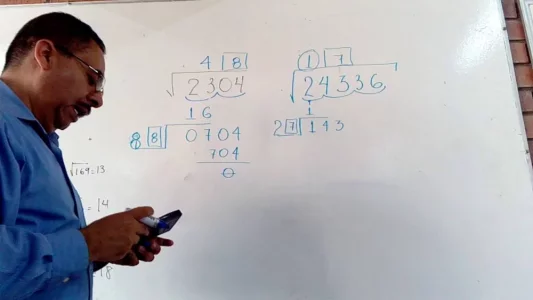 4 8
√2304
16
8 8 0704
704
0
1 7
√24336
1
2 7 143
√169=13
= 14
18